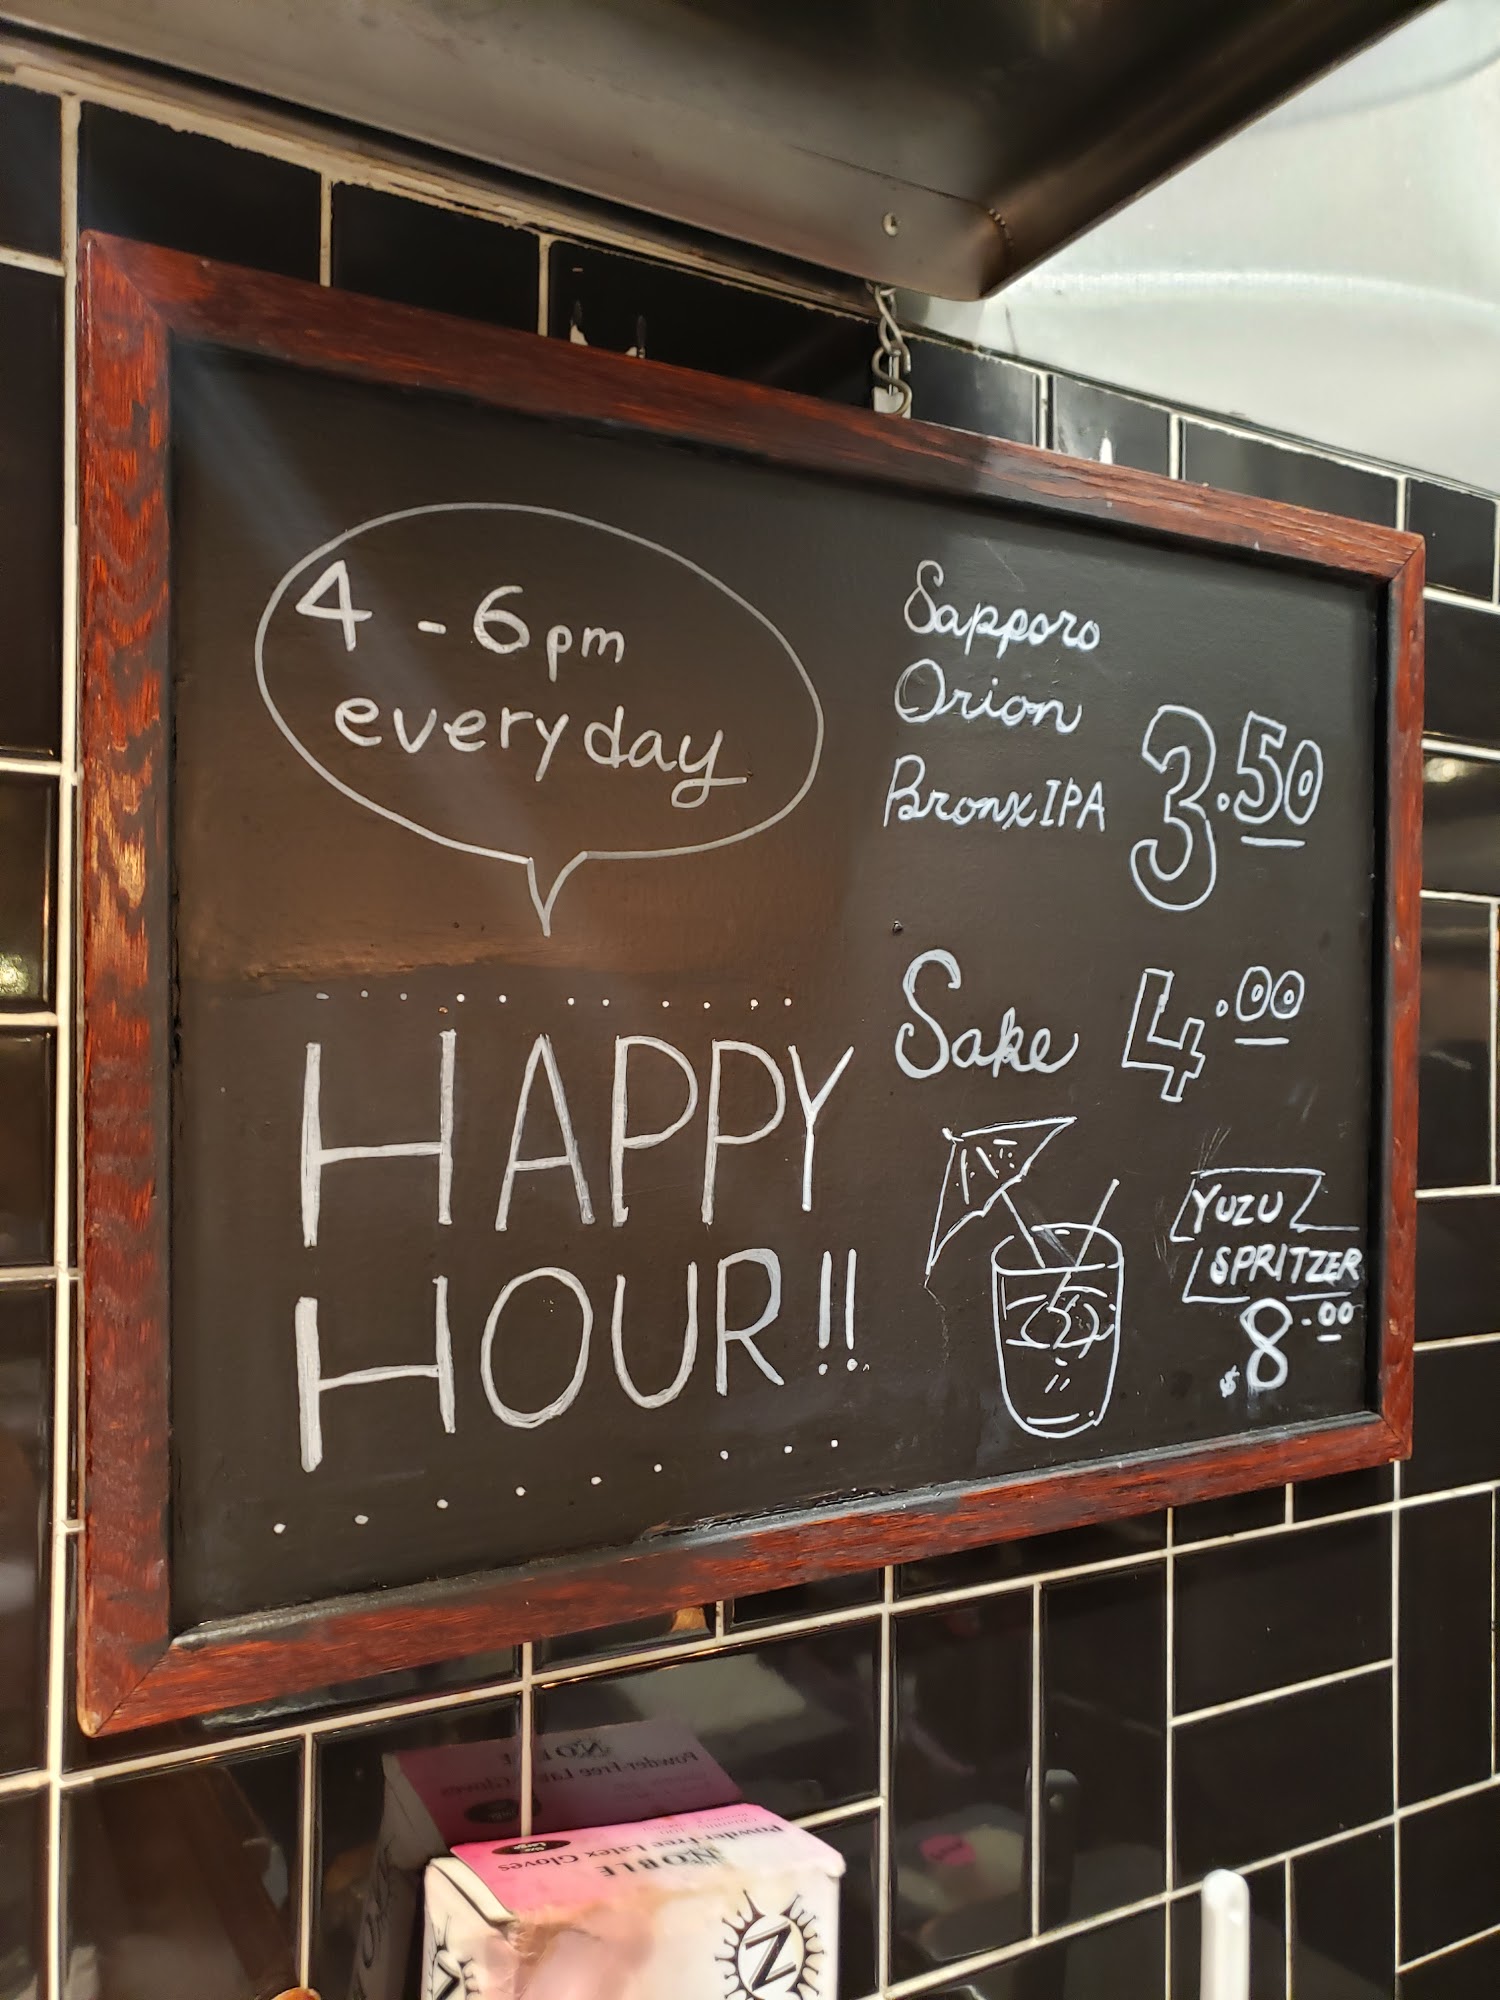 4 - 6pm
everyday
HAPPY
HOUR!!
Sapporo
Orion
Bronx IPA
3.50
Sake 4.00
YUZU
SPRITZER
$8.00
NOBLE
Powder-Free Latex Gloves